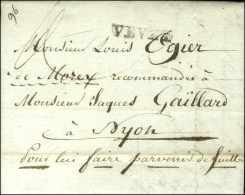 96
VEVEY
Monsieur Louis Egier
de Morex recommandée à
Monsieur Jaques Gaillard
à Nyon
Pour lui faire parvenir de suitte